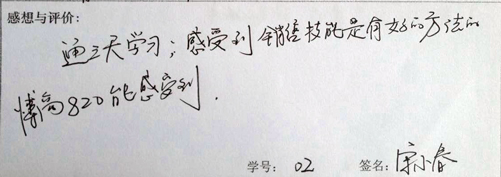 感想与评价:
通三天学习;感受到销售技能是有好的方法的
博商820能感受到.
学号: 02 签名: 宋小春